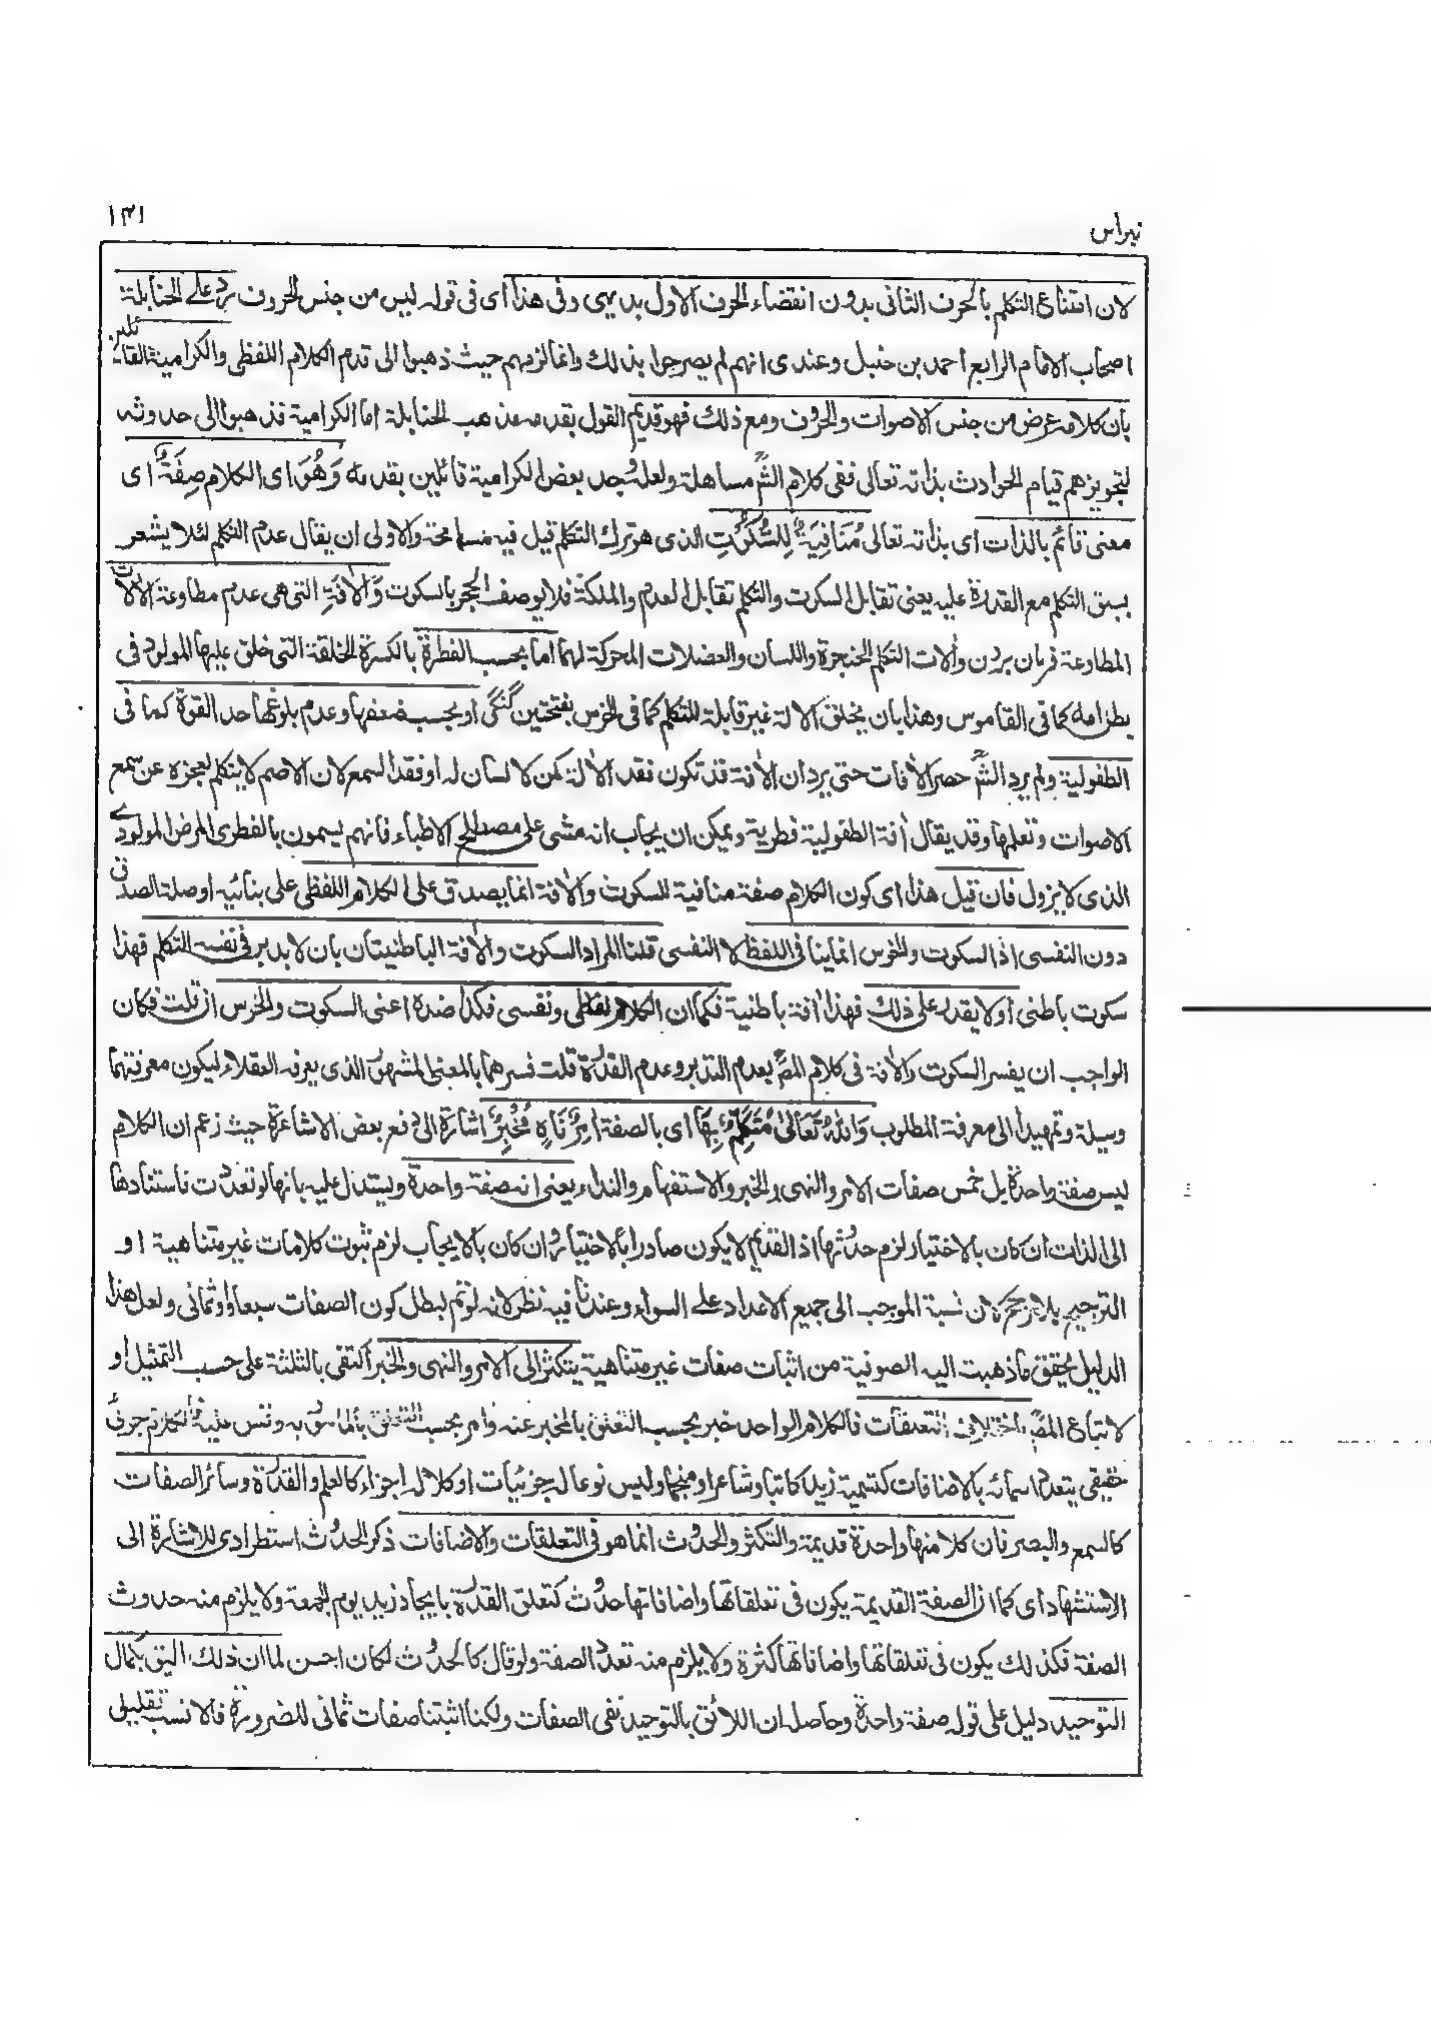 نبراس
۱۳۱
لان امتناع التكلم بالحرف الثاني بدون انقضاء الحرف الاول بديهى وفى هذا اى فى قوله ليس من جنس الحروف رد على الحنابلة
اصحاب الامام الرابع احمد بن حنبل وعندى انهم لم يصرحوا بذلك وانما لزمهم حيث ذهبوا الى قدم الكلام اللفظى والكرامية القائلين
بان كلامه عرض من جنس الاصوات والحروف ومع ذلك فهو قديم القول بقدمه مذهب الحنابلة اما الكرامية فذهبوا الى حدوثه
لتجويزهم قيام الحوادث بذاته تعالى ففى كلام الشؒ مساهلة ولعله وجد بعض الكرامية قائلين بقدمه وَهُوَ اى الكلام صِفَةٌ اى
معنى قائم بالذات اى بذاته تعالى مُنَافِيَةٌ لِلسُّكُوْتِ الذى هو ترك التكلم قيل فيه مسامحة والاولى ان يقال عدم التكلم لئلا يشعر
بسبق التكلم مع القدرة عليه يعنى تقابل السكوت والتكلم تقابل العدم والملكة فلا يوصف الحجر بالسكوت وَالْاٰفَةِ التى هى عدم مطاوعة الالات
المطاوعة فرمان بردن والات التكلم الحنجرة واللسان والعضلات المحركة لهما اما بحسب الفطرة بالكسرة الخلقة التى خلق عليها المولود فى
بطن امه كما فى القاموس وهذا بان يخلق الالة غير قابلة للتكلم كما فى الخرس بفتحتين گنگى او بحسب ضعفها وعدم بلوغها حد القوة كما فى
الطفولية ولم يرد الشؒ حصر الافات حتى يرد ان الافة قد تكون فقد الالة كمن لا لسان له او فقد السمع لان الاصم لا يتكلم لعجزه عن سمع
الاصوات وتعلمها وقد يقال اٰفة الطفولية فطرية ويمكن ان يجاب انه مشى على مصطلح الاطباء فانهم يسمون بالفطرى المرض المولودے
الذى لا يزول فان قيل هذا اى كون الكلام صفة منافية للسكوت والاٰفة انما يصدق على الكلام اللفظى على بنائيه اوصلة الصدق
دون النفسى اذ السكوت والخرس انما ينافى اللفظ لا النفسى قلنا المراد السكوت والاٰفة الباطنيتان بان لا يدبر فى نفسه التكلم فهذا
سكوت باطنى او لا يقدر على ذلك فهذا اٰفة باطنية فكما ان الكلام لفظى ونفسى فكذا ضده اعنى السكوت والخرس ان قلت فكان
الواجب ان يفسر السكوت والاٰفة فى كلام المصؒ بعدم التدبر وعدم القدرة قلت فسرهما بالمعنى المشهور الذى يعرفه العقلاء ليكون معرفتهما
وسيلة وتمهيدا الى معرفة المطلوب وَاللهُ تَعَالىٰ مُتَكَلِّمٌ بِهَا اى بالصفة اٰمِرٌ نَاهٍ مُخْبِرٌ اشارة الى دفع بعض الاشاعرة حيث زعم ان الكلام
ليس صفة واحدة بل خمس صفات الامر والنهى والخبر والاستفهام والنداء يعنى انه صفة واحدة ويستدل عليه بانها لو تعددت فاستنادها
الى الذات ان كان بالاختيار لزم حدوثها اذ القديم لا يكون صادرا بالاختيار وان كان بالايجاب لزم ثبوت كلامات غير متناهية او
الترجيح بلا مرجح لان نسبة الموجب الى جميع الاعداد على السواء وعندنا فيه نظر لانه لو تم لبطل كون الصفات سبعا او ثمانى ولعل هذا
الدليل يحقق ما ذهبت اليه الصوفية من اثبات صفات غير متناهية يتكثر الى الامر والنهى والخبر اكتفى بالثلثة على حسب التمثيل او
لاتباع المصؒ باختلاف التعلقات فالكلام الواحد خبر بحسب التعلق بالمخبر عنه وامر بحسب التعلق بالمامور به وقس عليه فالكلام جزئى
حقيقى يتعدد اسمائه بالاضافات كتسمية زيد كاتبا وشاعرا ومنجما وليس نوعا له جزئيات او كلا له اجزاء كالعلم والقدرة وسائر الصفات
كالسمع والبصر فان كلا منها واحدة قديمة والتكثر والحدوث انما هو فى التعلقات والاضافات ذكر الحدوث استطرادى للاشارة الى
الاستشهاد اى كما ان الصفة القديمة يكون فى تعلقاتها واضافاتها حدوث كتعلق القدرة بايجاد زيد يوم الجمعة ولا يلزم منه حدوث
الصفة فكذلك يكون فى تعلقاتها واضافاتها كثرة ولا يلزم منه تعدد الصفة ولو قال كالحدوث لكان احسن لما ان ذلك اليق بكمال
التوحيد دليل على قوله صفة واحدة وحاصل ان اللائق بالتوحيد نفى الصفات ولكنا اثبتنا صفات ثمانى للضرورة فالانسب تقليل